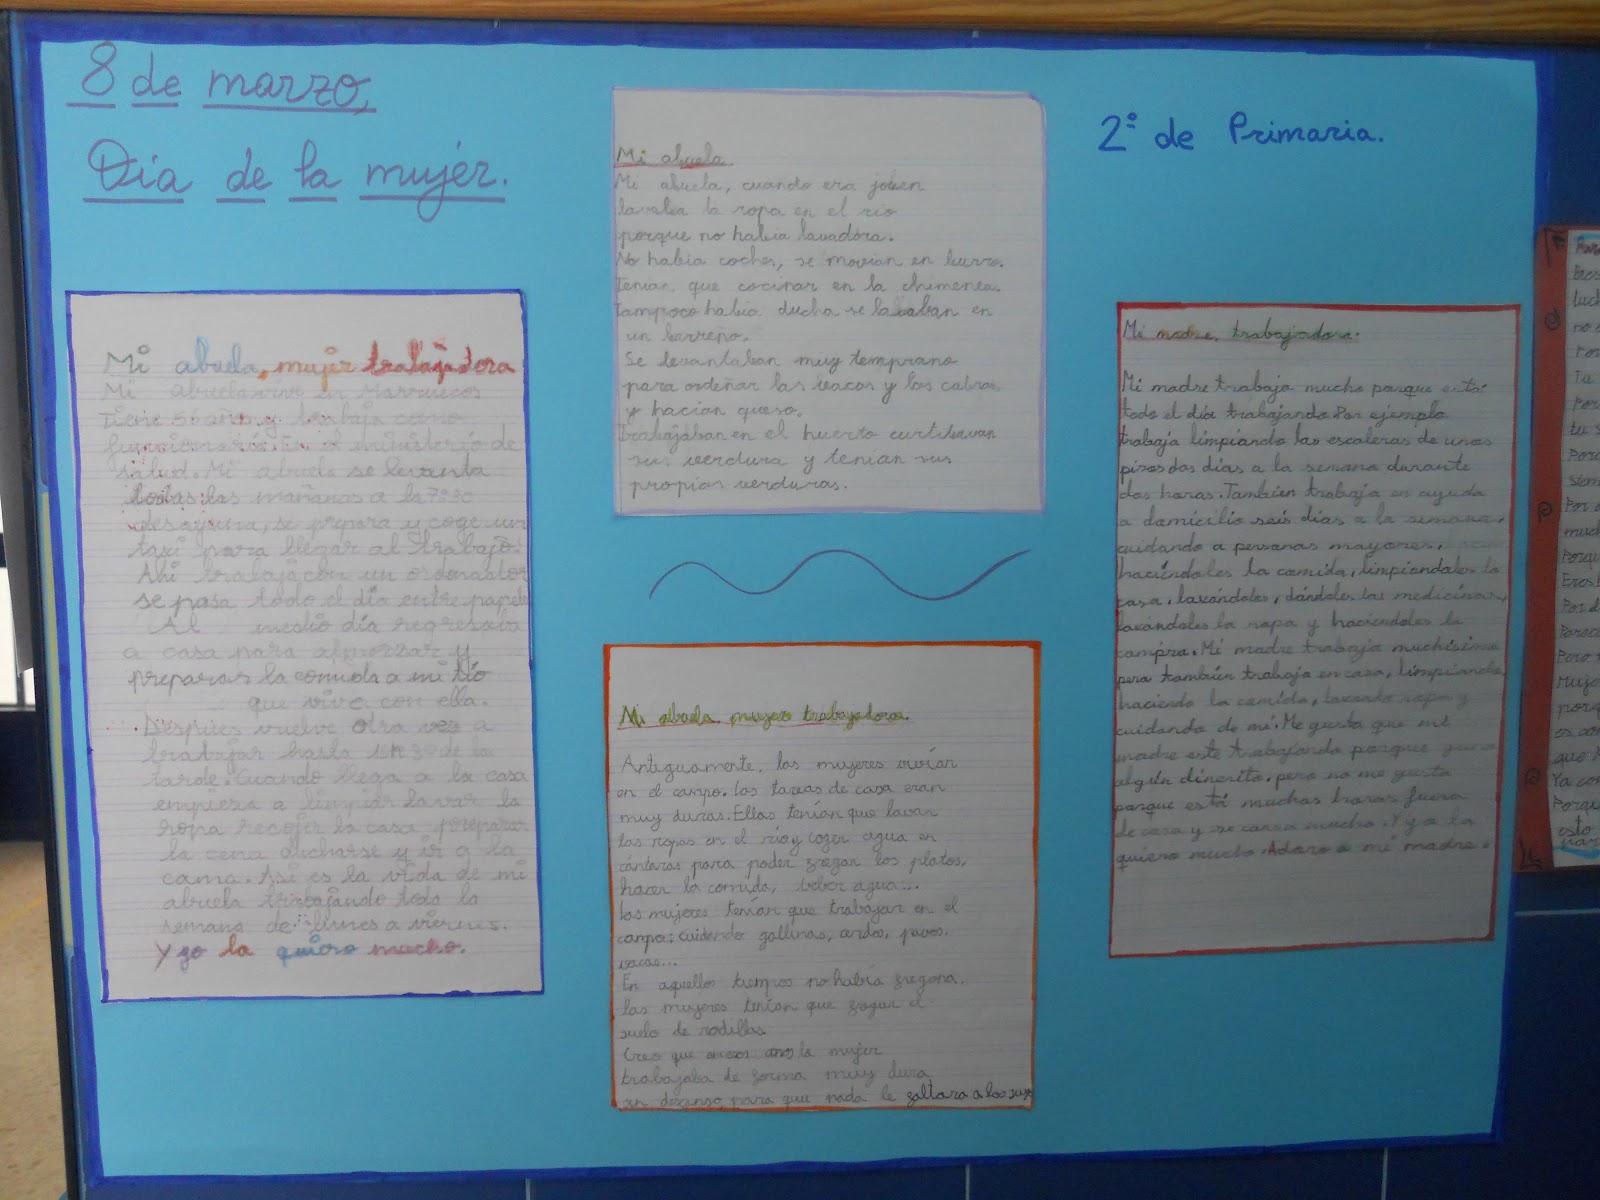 8 de marzo,
Día de la mujer.
2º de Primaria.
Mi abuela, mujer trabajadora
Mi abuela vive en Marruecos
Tiene 56 años y trabaja como
funcionaria. En el ministerio de
salud. Mi abuela se levanta
todas las mañanas a la 7:30
desayuna, se prepara y coge un
taxi para llegar al trabajo.
Ahi trabaja con un ordenador
se pasa todo el día entre papeles
Al medio día regresava
a casa para almorzar y
preparar la comida a mi tío
que vive con ella.
Despues vuelve otra vez a
trabajar hasta de la
tarde. Cuando llega a la casa
empieza a limpiar lavar la
ropa recojer la casa preparar
la cena ducharse y ir a la
cama. Así es la vida de mi
abuela trabajando toda la
semana de lunes a viernes.
Y yo la quiero mucho.
Mi abuela
Mi abuela, cuando era joven
lavaba la ropa en el rio
porque no habia lavadora.
No habia coches, se movian en burro.
Tenian que cocinar en la chimenea.
Tampoco habia ducha se lavaban en
un barreño.
Se levantaban muy temprano
para ordeñar las vacas y las cabras
y hacian queso.
Trabajaban en el huerto curtibavan
sus verdura y tenian sus
propias verduras.
Mi abuela, mujer trabajadora.
Antiguamente, las mujeres vivían
en el campo. Las tareas de casa eran
muy duras. Ellas tenían que lavar
las ropas en el río y cozer agua en
cántaras para poder fregar los platos,
hacer la comida, beber agua...
Las mujeres tenían que trabajar en el
campo: cuidando gallinas, cerdos, pavos,
vacas...
En aquellos tiempos no había fregona.
Las mujeres tenían que fregar el
suelo de rodillas
Creo que la mujer
trabajaba de forma muy dura,
sin descanso, para que nada le faltara a los suyos
Mi madre, trabajadora.
Mi madre trabaja mucho porque está
todo el día trabajando. Por ejemplo
trabaja limpiando las escaleras de unos
pisos dos días a la semana durante
dos horas. También trabaja en ayuda
a domicilio seis días a la semana,
cuidando a personas mayores,
haciéndoles la comida, limpiándoles la
casa, lavándoles, dándoles las medicinas,
lavándoles la ropa y haciéndoles la
compra. Mi madre trabaja muchísimo
pero también trabaja en casa, limpiando,
haciendo la comida, lavando ropa y
cuidando de mí. Me gusta que mi
madre esté trabajando porque gana
algún dinerito, pero no me gusta
porque está muchas horas fuera
de casa y se cansa mucho. Y yo la
quiero mucho. Adoro a mi madre.